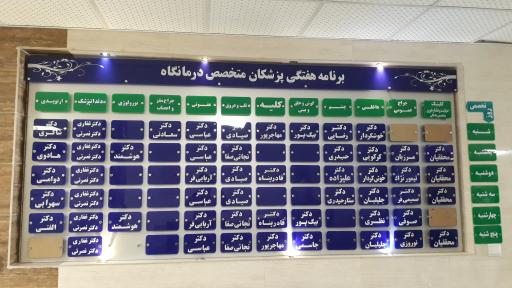 برنامه هفتگی پزشکان متخصص درمانگاه
تخصص
روز
جراح عمومی
داخلی
چشم
گوش و حلق و بینی
کلیه
عفونی
جراح مغز و اعصاب
نورولوژی
ارتوپدی
شنبه
دکتر خوشگردار
دکتر رضایی
دکتر بیگ پور
دکتر مهاجرپور
دکتر صیادی
دکتر عباسی
دکتر سعادتی
دکتر غفاری
دکتر نصرتی
دکتر شاکری
یکشنبه
دکتر محققیان
دکتر مرزبان
دکتر حیدری
دکتر نجاتی صفا
دکتر عباسی
دکتر هوشمند
دکتر غفاری
دکتر نصرتی
دکتر هادوی
دوشنبه
دکتر محققیان
دکتر تیمور نژاد
دکتر خوش کردار
دکتر علیزاده
دکتر قادرپناه
دکتر صیادی
دکتر آریایی فر
دکتر غفاری
دکتر نصرتی
دکتر دوامی
سه شنبه
دکتر محققیان
دکتر سمیعی فر
دکتر جلیلیان
دکتر ستارحیدری
دکتر نجاتی صفا
دکتر عباسی
دکتر غفاری
دکتر نصرتی
دکتر سهرابی
چهارشنبه
دکتر صوفی
دکتر نظری
دکتر بیگ پور
دکتر قادرپناه
دکتر صیادی
دکتر آریایی فر
دکتر هوشمند
دکتر غفاری
دکتر نصرتی
دکتر الفتی
پنج شنبه
دکتر محققیان
دکتر نوروزی
دکتر جلیلیان
دکتر جاسمی
دکتر مهاجرپور
دکتر نجاتی صفا
دکتر عباسی
دکتر غفاری
دکتر نصرتی